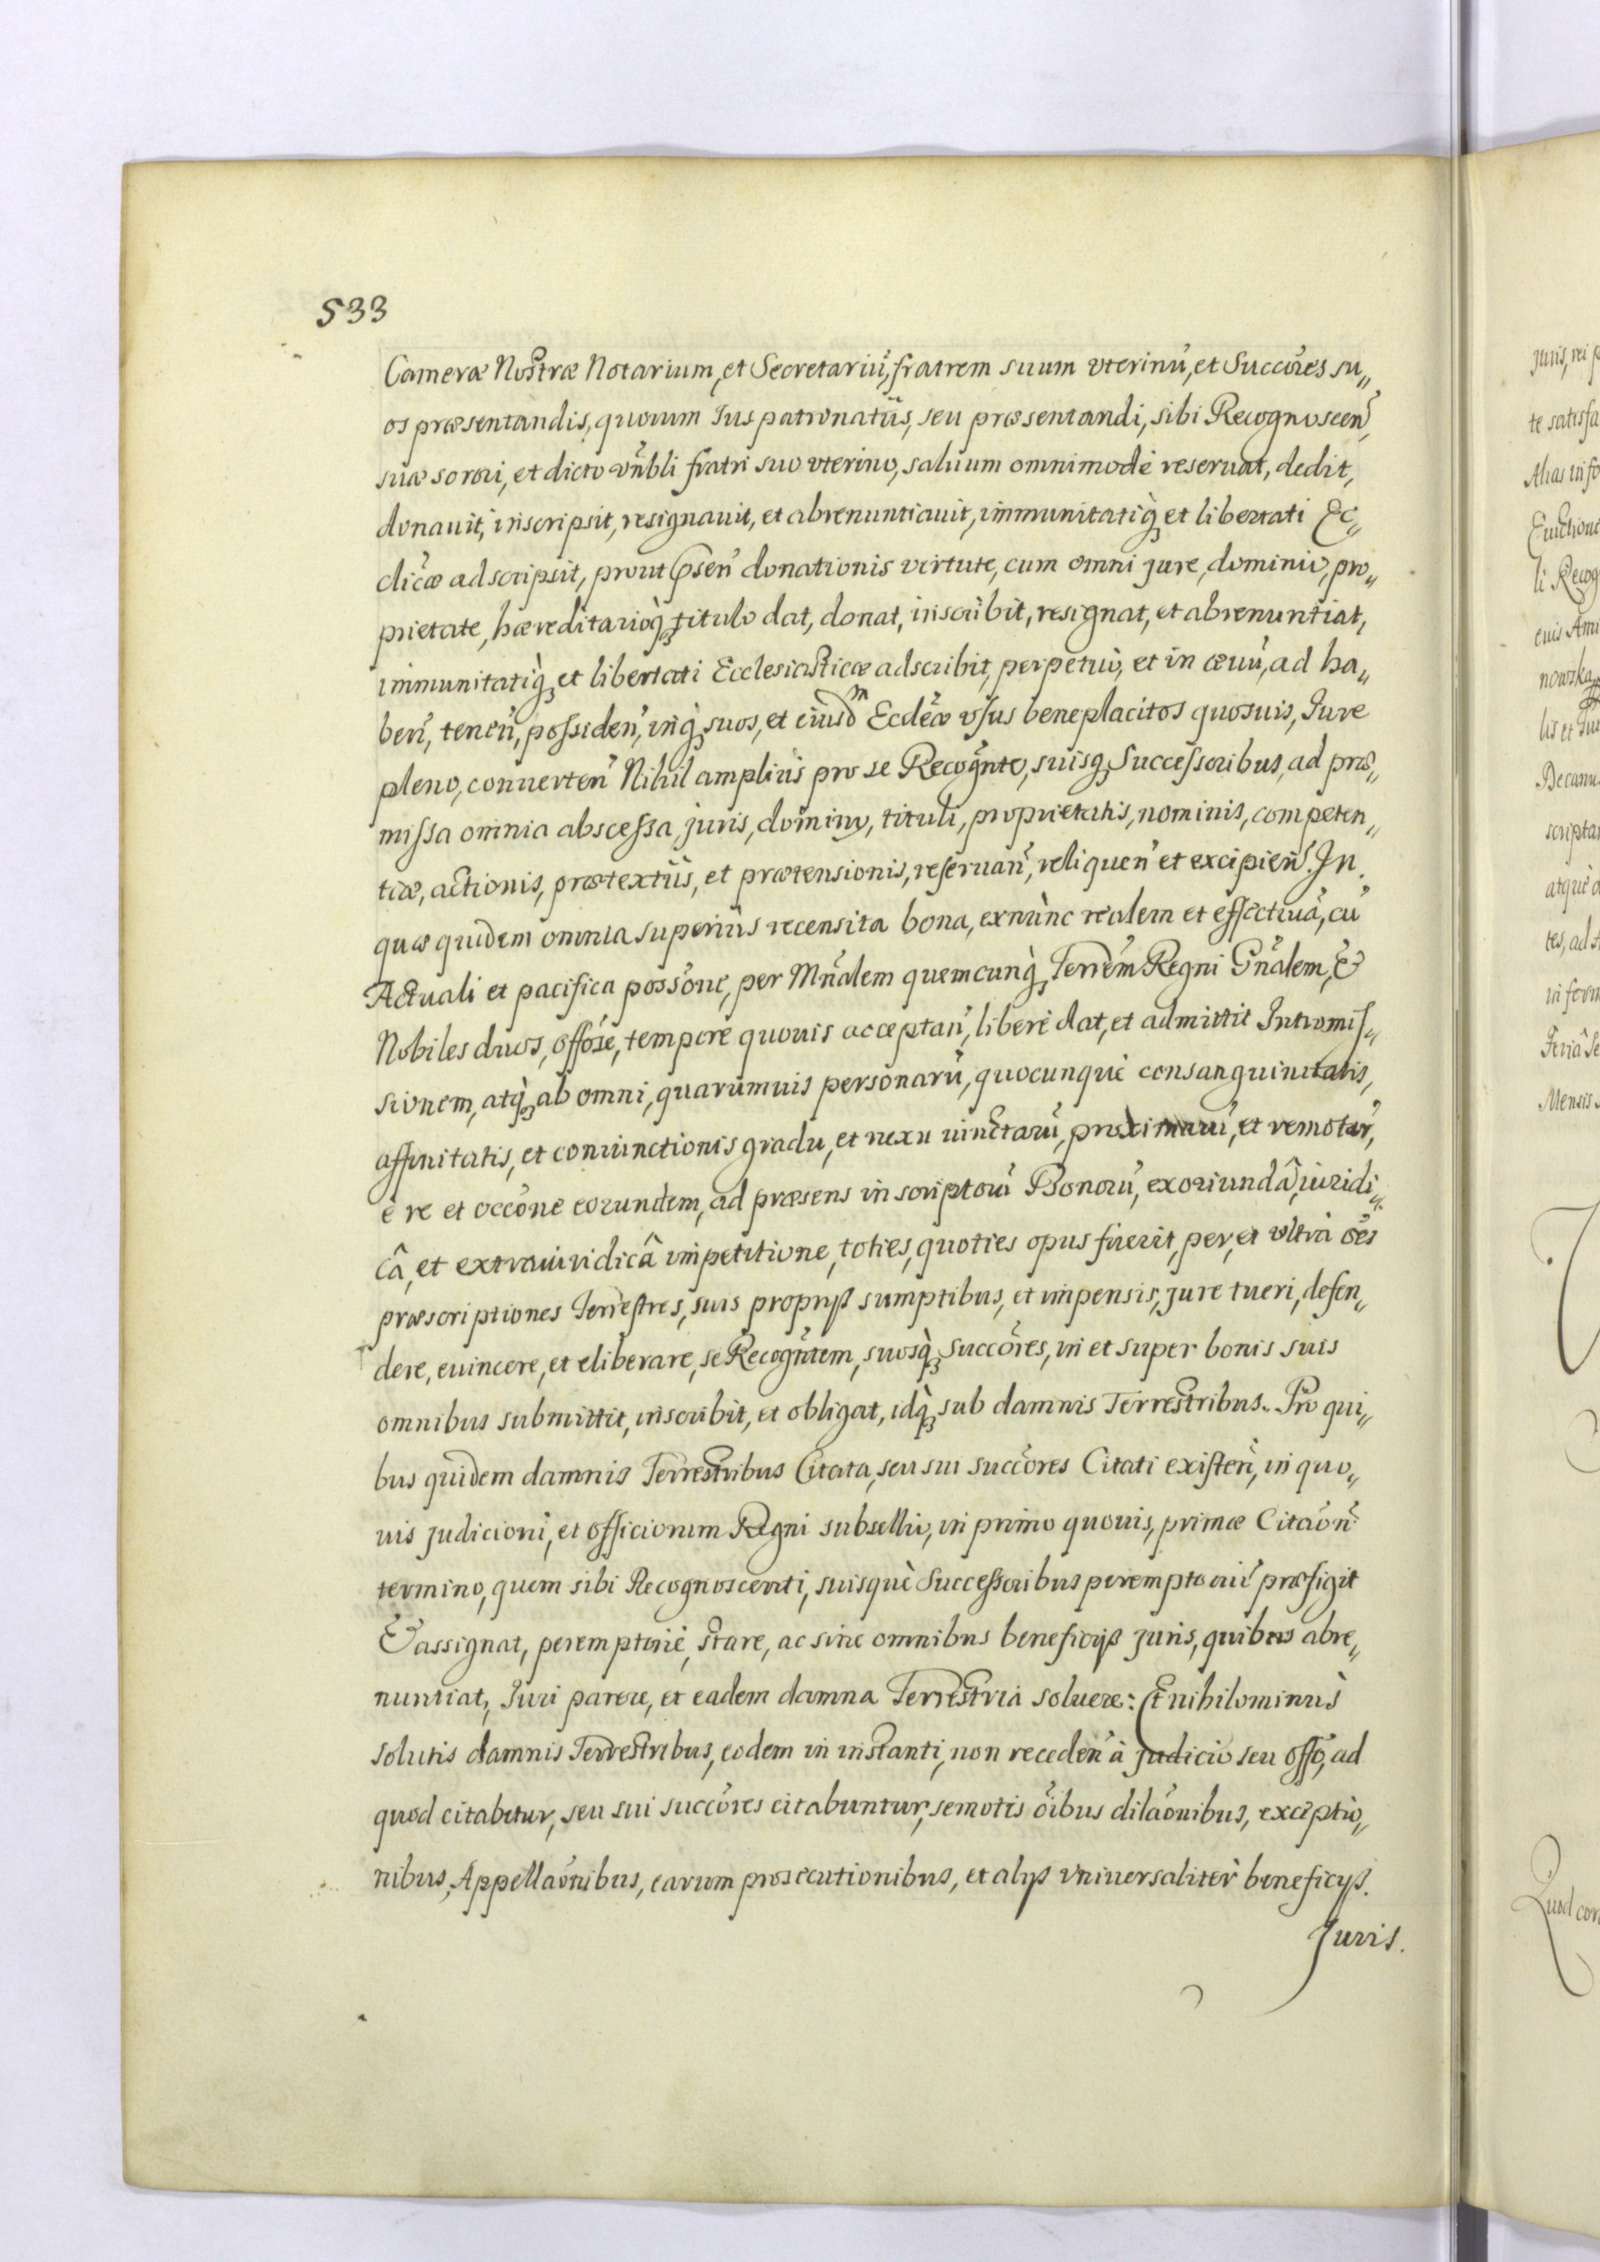 533
Cameræ Nostræ Notarium, et Secretariũ, fratrem suum vterinũ, et Succõres su„
os præsentandis, quorum Ius patronatûs, seu præsentandi, sibi Recognoscen̄,
suæ sorori, et dicto vñbli fratri suo vterino, saluum omnimodè reseruat, dedit,
donauit, inscripsit, resignauit, et abrenuntiauit, immunitatiq̀; et libertati Ec„
clicæ̃ adscripsit, prout p̃sen̄ donationis virtute, cum omni jure, dominio, pro„
prietate, hæreditarioq̀; titulo dat, donat, inscribit, resignat, et abrenuntiat,
immunitatiq̀; et libertati Ecclesiasticæ adscribit, perpetuò, et in æuũ, ad ha„
ben̄, tenen̄, possiden̄, inq̀; suos, et eiusdm Ecclẽæ vsus beneplacitos quosuis, Iure
pleno, conuerten̄ Nihil ampliùs pro se Recogñte, suisq; Successoribus, ad præ„
missa omnia abscessa, juris, dominy, tituli, proprietatis, nominis, competen„
tiæ, actionis, prætextûs, et prætensionis, reseruan̄, reliquen̄ et excipien̄. In
quæ quidem omnia superiùs recensita bona, exnùnc realem et effectiuã, cũ
Actuali et pacifica possõne, per Mñalem quemcunq̀; Terrẽm Regni Gñalem, &
Nobiles duos, offõse, tempore quouis acceptan̄, liberè dat, et admittit Intromis„
sionem, atq̀; ab omni, quarumuis personarũ, quocunquè consanguinitatis,
affinitatis, et coniunctionis gradu, et nexu iunctarũ, proximarũ, et remotar̃,
è re et occõne eorundem, ad præsens inscriptorũ Bonorũ, exoriundâ, iuridi„
câ, et extraiuridicâ impetitione, toties, quoties opus fuerit, per, et vltrà oẽs
præscriptiones Terrestres, suis proprijs sumptibus, et impensis, jure tueri, defen„
dere, euincere, et eliberare, se Recogñtem, suosq̀; succõres, in et super bonis suis
omnibus submittit, inscribit, et obligat, idq̀; sub damnis Terrestribus. Pro qui„
bus quidem damnis Terrestribus Citata, seu sui succõres Citati existen̄, in quo„
uis judiciorũ, et officiorum Regni subsellio, in primo quouis, primæ Citaõn̄
termino, quem sibi Recognoscenti, suisquè Successoribus peremptoriè præfigit
& assignat, peremptoriè, stare, ac sine omnibus beneficijs juris, quibus abre„
nuntiat, Iuri parere, et eadem damna Terrestria soluere: Et nihilominùs
solutis damnis Terrestribus, eodem in instanti, non receden̄ à judicio seu offõ, ad
quod citabitur, seu sui succõres citabuntur, semotis õibus dilaõnibus, exceptio„
nibus, Appellaõnibus, earum prosecutionibus, et alijs vniuersalitèr beneficijs.
Juris.